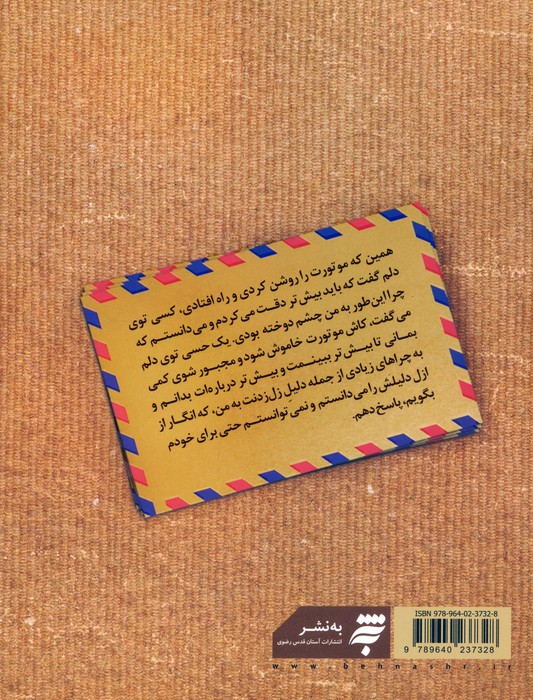 همین که موتورت را روشن کردی و راه افتادی، کسی توی
دلم گفت که باید بیش‌تر دقت می‌کردم و می‌دانستم که
چرا این‌طور به من چشم دوخته بودی. یک حسی توی دلم
می‌گفت، کاش موتورت خاموش شود و مجبور شوی کمی
بمانی تا بیش‌تر ببینمت و بیش‌تر درباره‌ات بدانم و
به چراهای زیادی از جمله دلیل زل‌زدنت به من، که انگار از
ازل دلیلش را می‌دانستم و نمی‌توانستم حتی برای خودم
بگویم، پاسخ دهم.
به‌نشر
انتشارات آستان قدس رضوی
ISBN 978-964-02-3732-8
9 789640 237328
www.behnashr.ir